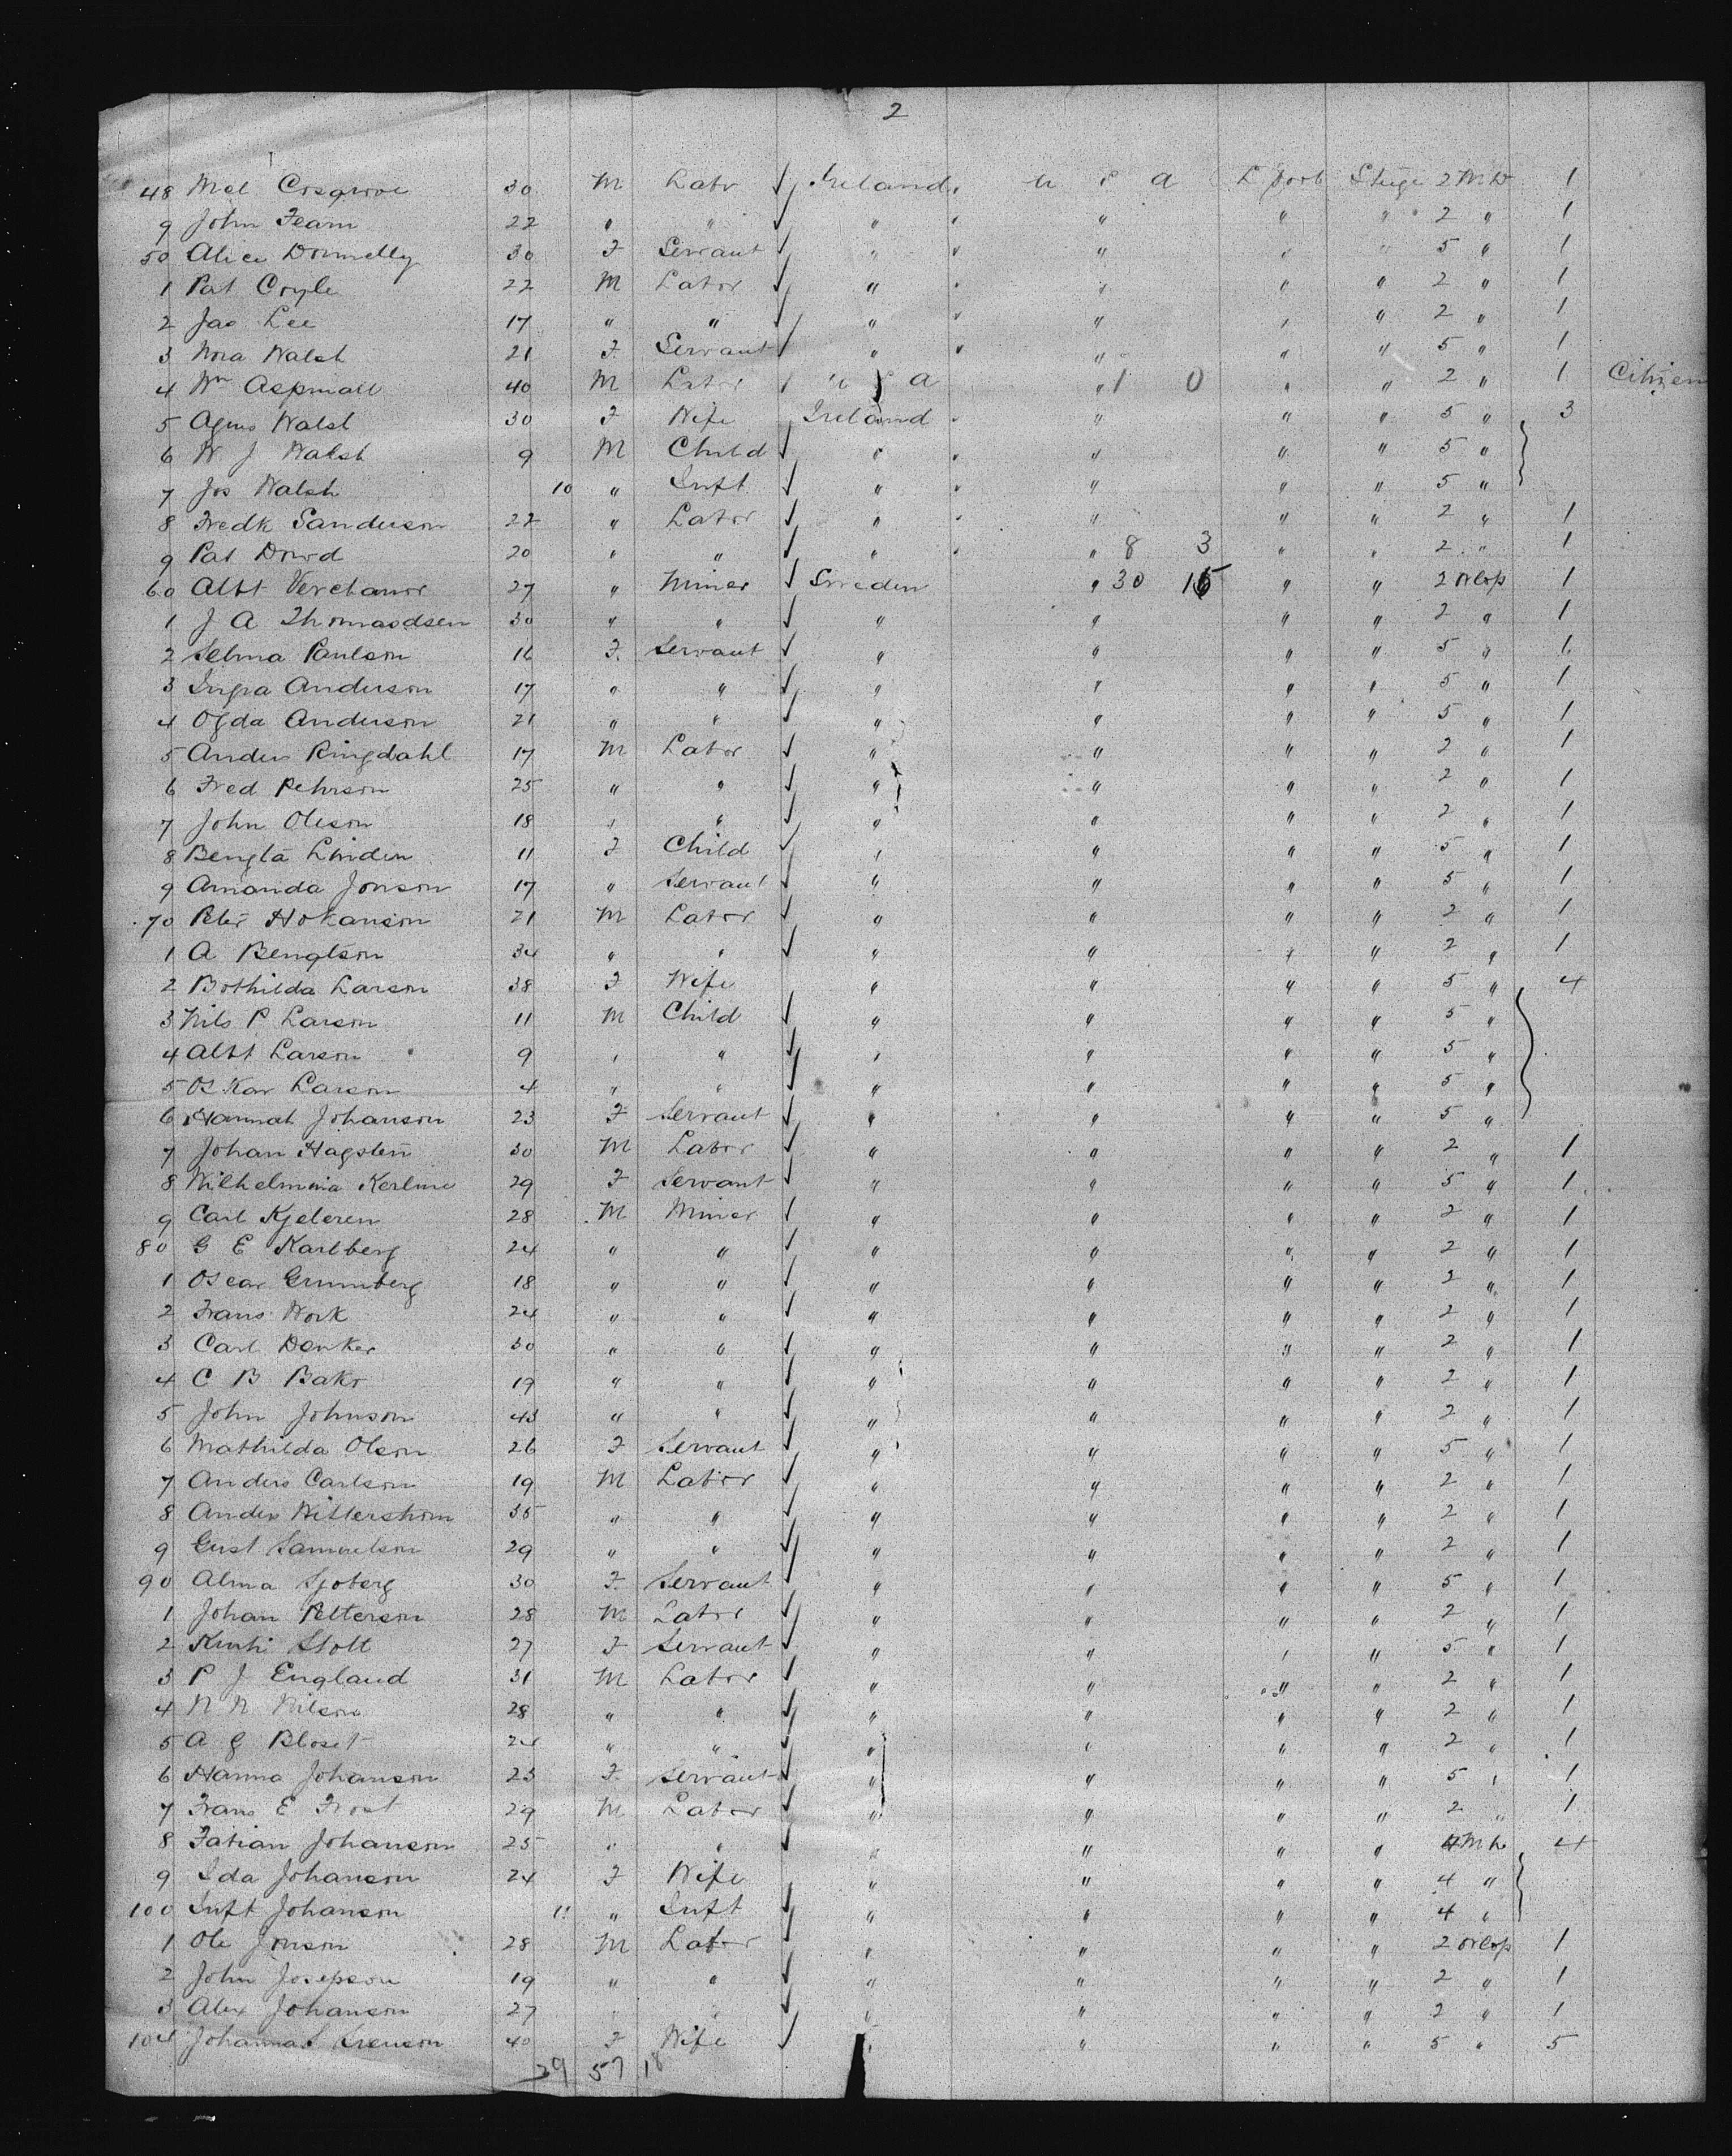 2
48 Mcl Cosgrove 30 M Labr ✓ Ireland U S A L pool Stege 2 M D 1
9 John Fearn 22 " " ✓ " " " " 2 " 1
50 Alice Donnelly 30 F Servant ✓ " " " " 5 " 1
1 Pat Coyle 22 M Labor ✓ " " " " 2 " 1
2 Jas Lee 17 " " ✓ " " " " 2 " 1
3 Nora Walsh 21 F Servant ✓ " " " " 5 " 1
4 Wm Aspinall 40 M Labor U S A " 1 0 " " 2 " 1 Citizen
5 Agnes Walsh 30 F Wife Ireland " " " 5 " 3
6 W J Walsh 9 M Child ✓ " " " " 5 "
7 Jos Walsh 10 " Inft ✓ " " " " 5 "
8 Fredk Sanderson 22 " Labor ✓ " " " " 2 " 1
9 Pat Dowd 20 " " ✓ " " 8 3 " " 2 " 1
60 Albt 27 " Miner ✓ Sweden " 30 15 " " 2 Orlop 1
1 J A Thomasdsen 30 " " ✓ " " " " 2 " 1
2 Selma Paulson 16 F Servant ✓ " " " " 5 " 1
3 Inga Anderson 17 " " ✓ " " " " 5 " 1
4 Ogda Anderson 21 " " ✓ " " " " 5 " 1
5 Anders Ringdahl 17 M Labor ✓ " " " " 2 " 1
6 Fred Pehrson 25 " " ✓ " " " " 2 " 1
7 John Oleson 18 " " ✓ " " " " 2 " 1
8 Bengta Linden 11 F Child ✓ " " " " 5 " 1
9 Amanda Jonson 17 " Servant ✓ " " " " 5 " 1
70 Peter Hokanson 21 M Labor ✓ " " " " 2 " 1
1 A Bengtson 34 " " ✓ " " " " 2 " 1
2 Bothilda Larson 38 F Wife " " " " 5 " 4
3 Nils P Larson 11 M Child ✓ " " " " 5 "
4 Albt Larson 9 " " ✓ " " " " 5 "
5 Oskar Larson 4 " " ✓ " " " " 5 "
6 Hannah Johanson 23 F Servant ✓ " " " " 5 "
7 Johan Hagsten 30 M Labor ✓ " " " " 2 " 1
8 Wilhelmina 29 F Servant ✓ " " " " 5 " 1
9 Carl Kjeleren 28 M Miner ✓ " " " " 2 " 1
80 G E Karlberg 24 " " ✓ " " " " 2 " 1
1 Oscar Grunberg 18 " " ✓ " " " " 2 " 1
2 Frans Work 24 " " ✓ " " " " 2 " 1
3 Carl Denker 30 " " ✓ " " " " 2 " 1
4 C B Bakr 19 " " ✓ " " " " 2 " 1
5 John Johnson 43 " " ✓ " " " " 2 " 1
6 Mathilda Olson 26 F Servant ✓ " " " " 5 " 1
7 Anders Carlson 19 M Labor ✓ " " " " 2 " 1
8 Anders 35 " " ✓ " " " " 2 " 1
9 Gust Samuelson 29 " " ✓ " " " " 2 " 1
90 Alma Sjoberg 30 F Servant ✓ " " " " 5 " 1
1 Johan Petterson 28 M Labor ✓ " " " " 2 " 1
2 Stolt 27 F Servant ✓ " " " " 5 " 1
3 P J England 31 M Labor ✓ " " " " 2 " 1
4 N N Nilson 28 " " ✓ " " " " 2 " 1
5 A G 24 " " ✓ " " " " 2 " 1
6 Hanna Johanson 23 F Servant ✓ " " " " 5 " 1
7 Frans E Frost 29 M Labor ✓ " " " " 2 " 1
8 Fabian Johanson 25 " " ✓ " " " " 4 4
9 Ida Johanson 24 F Wife " " " " 4 "
100 Inft Johanson 11 " Inft ✓ " " " " 4 "
1 Ole Jonson 28 M Labor ✓ " " " " 2 Orlop 1
2 John Josepson 19 " " ✓ " " " " 2 " 1
3 Alex Johanson 27 " " ✓ " " " " 2 " 1
104 Johanna 40 F Wife ✓ " " " " 5 " 5
29 57 18